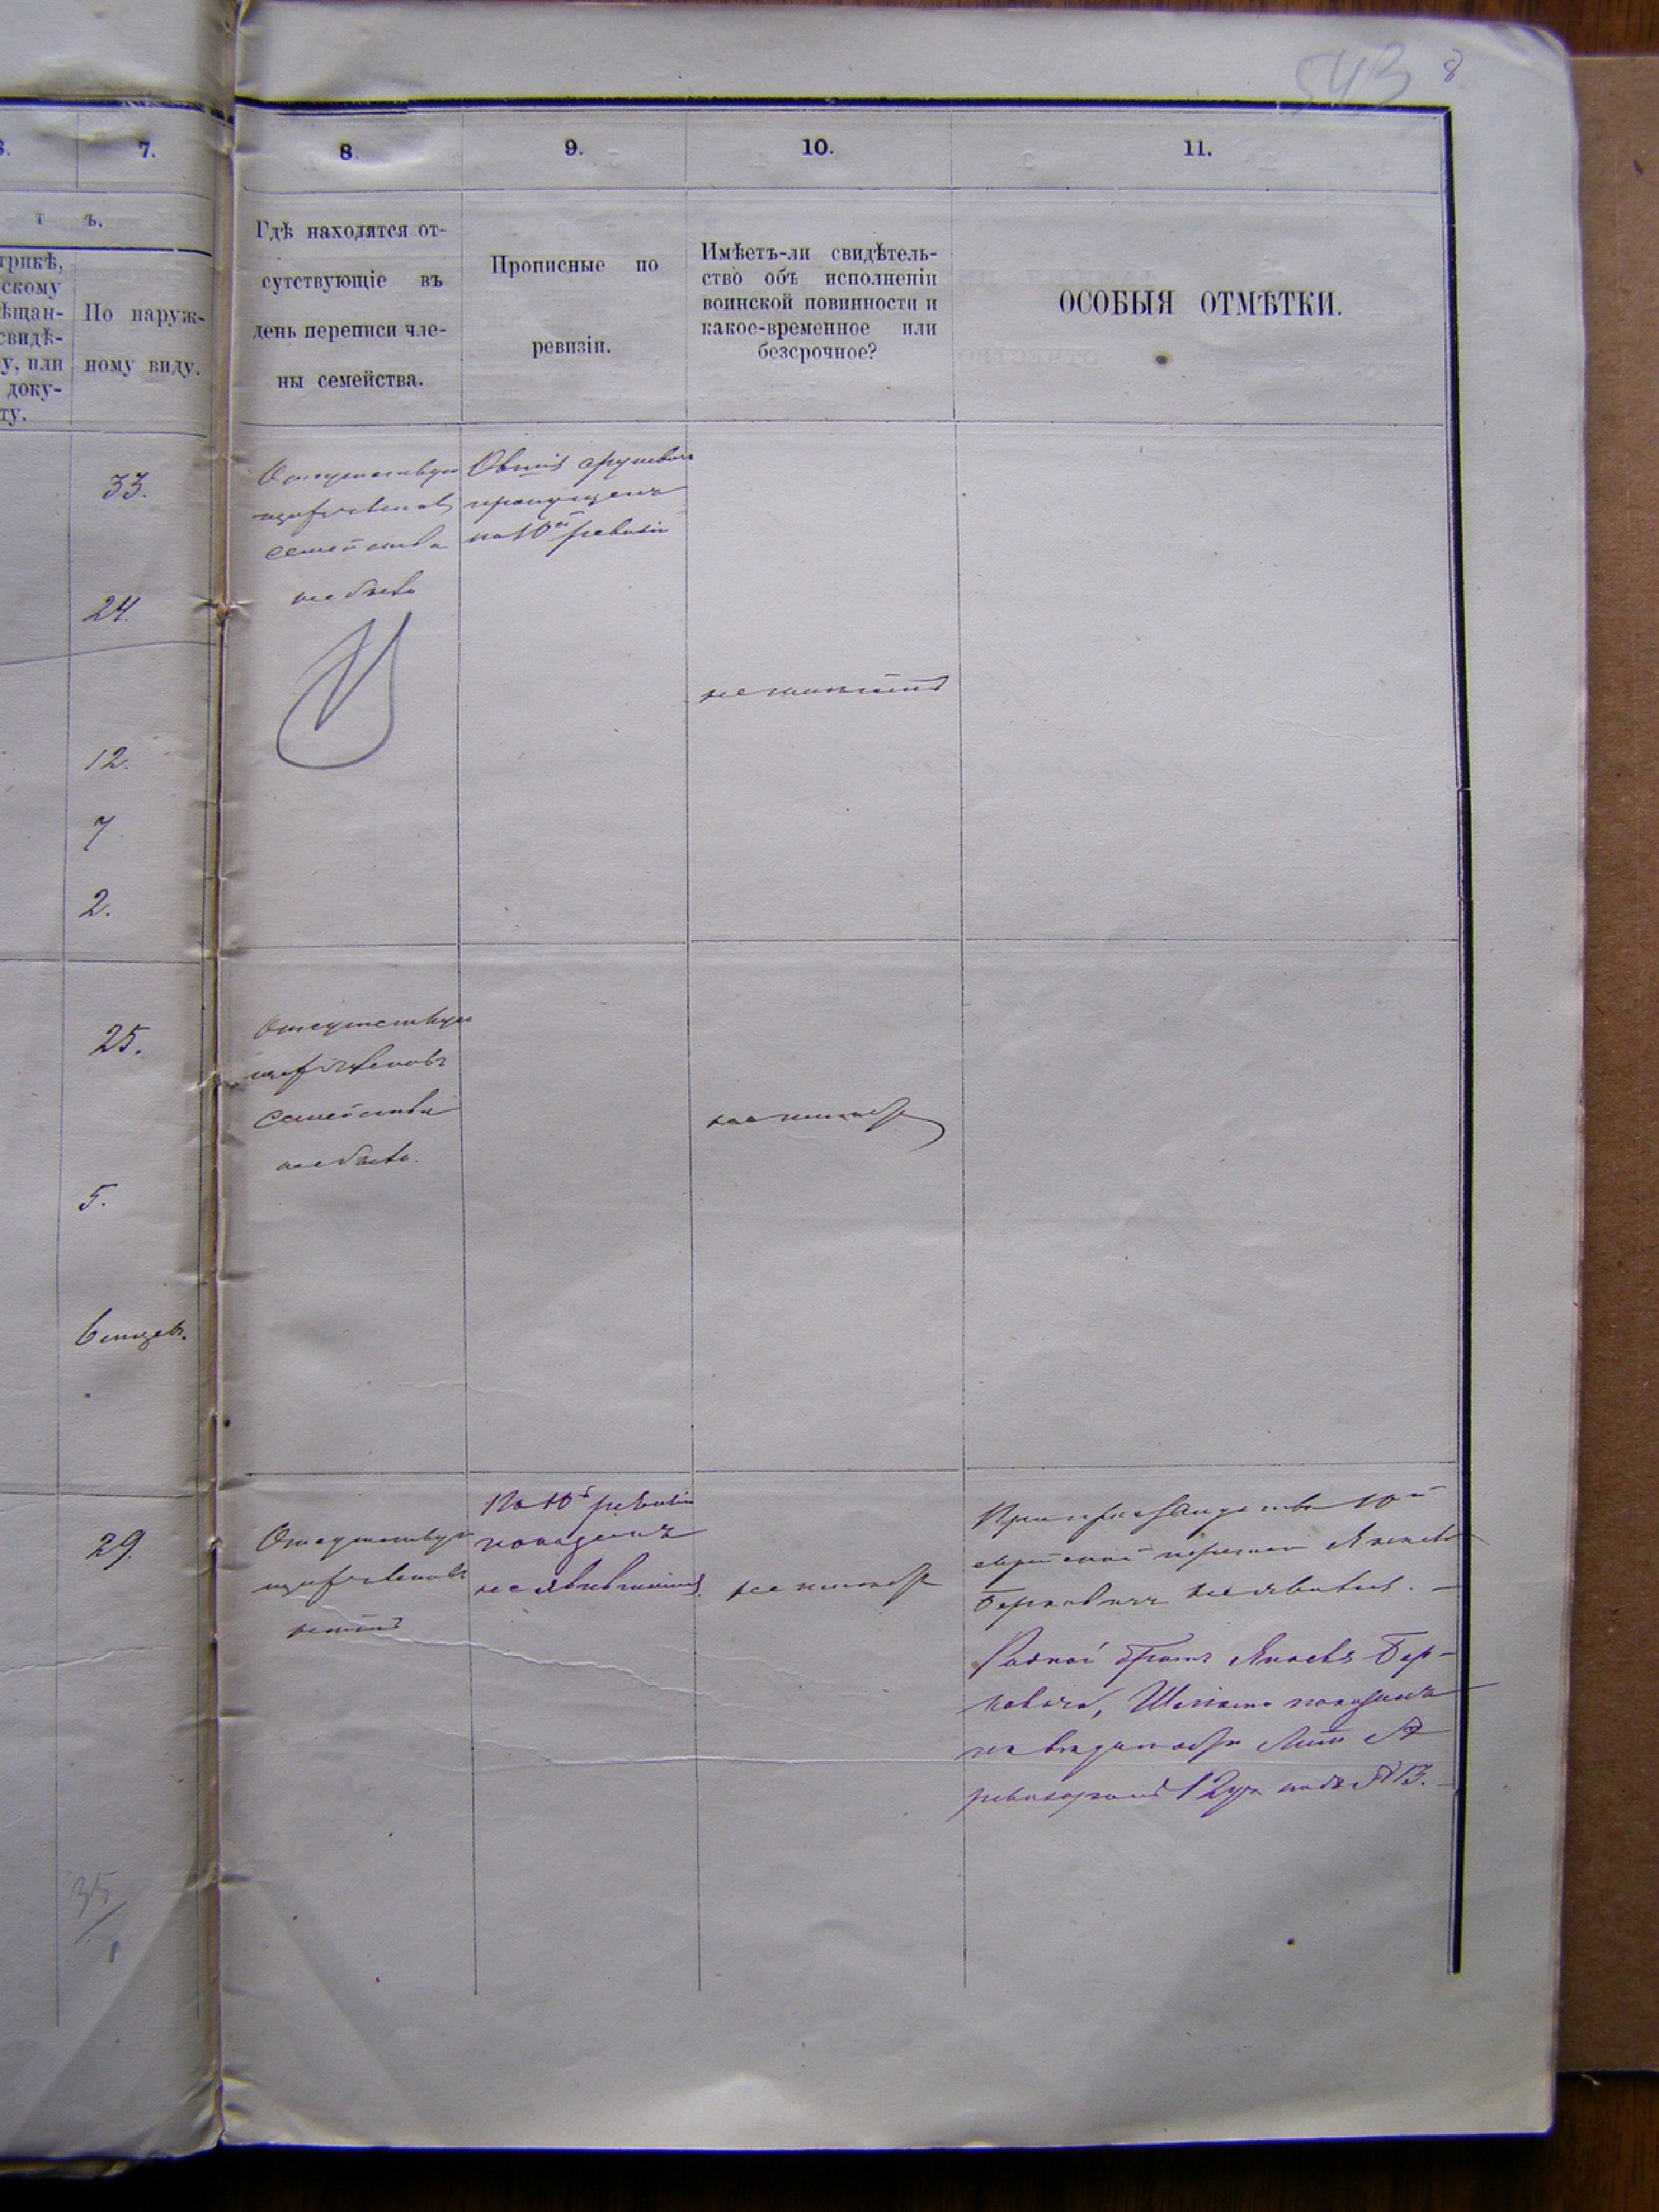 543 8
7.
8.
9.
10.
11.
т ъ.
трикѣ,
скому
ѣщан-
свидѣ-
у, или
доку-
ту.
По наруж-
ному виду.
Гдѣ находятся от-
сутствующіе въ
день переписи чле-
ны семейства.
Прописные по
ревизіи.
Имѣетъ-ли свидѣтель-
ство объ исполненіи
воинской повинности и
какое-временное или
безсрочное?
ОСОБЫЯ ОТМѢТКИ.
33.
24.
12.
7
2.
Отсутствую
щихъ членовъ
семейства
не было
пропущенъ
по 10й ревизіи
не имѣетъ
25.
5.
6 мѣсяц.
Отсутствую
щихъ членовъ
семейства
не было.
не имѣетъ
29.
35
Отсутствую
щихъ членовъ
нѣтъ
По 10й ревизіи
показанъ
не явившимся
не имѣетъ
При 10й
переписи Янкель
Берковичъ не явился.
Родной братъ Янкеля Бер-
ковича, показанъ
Лит А
12 подъ № 13.